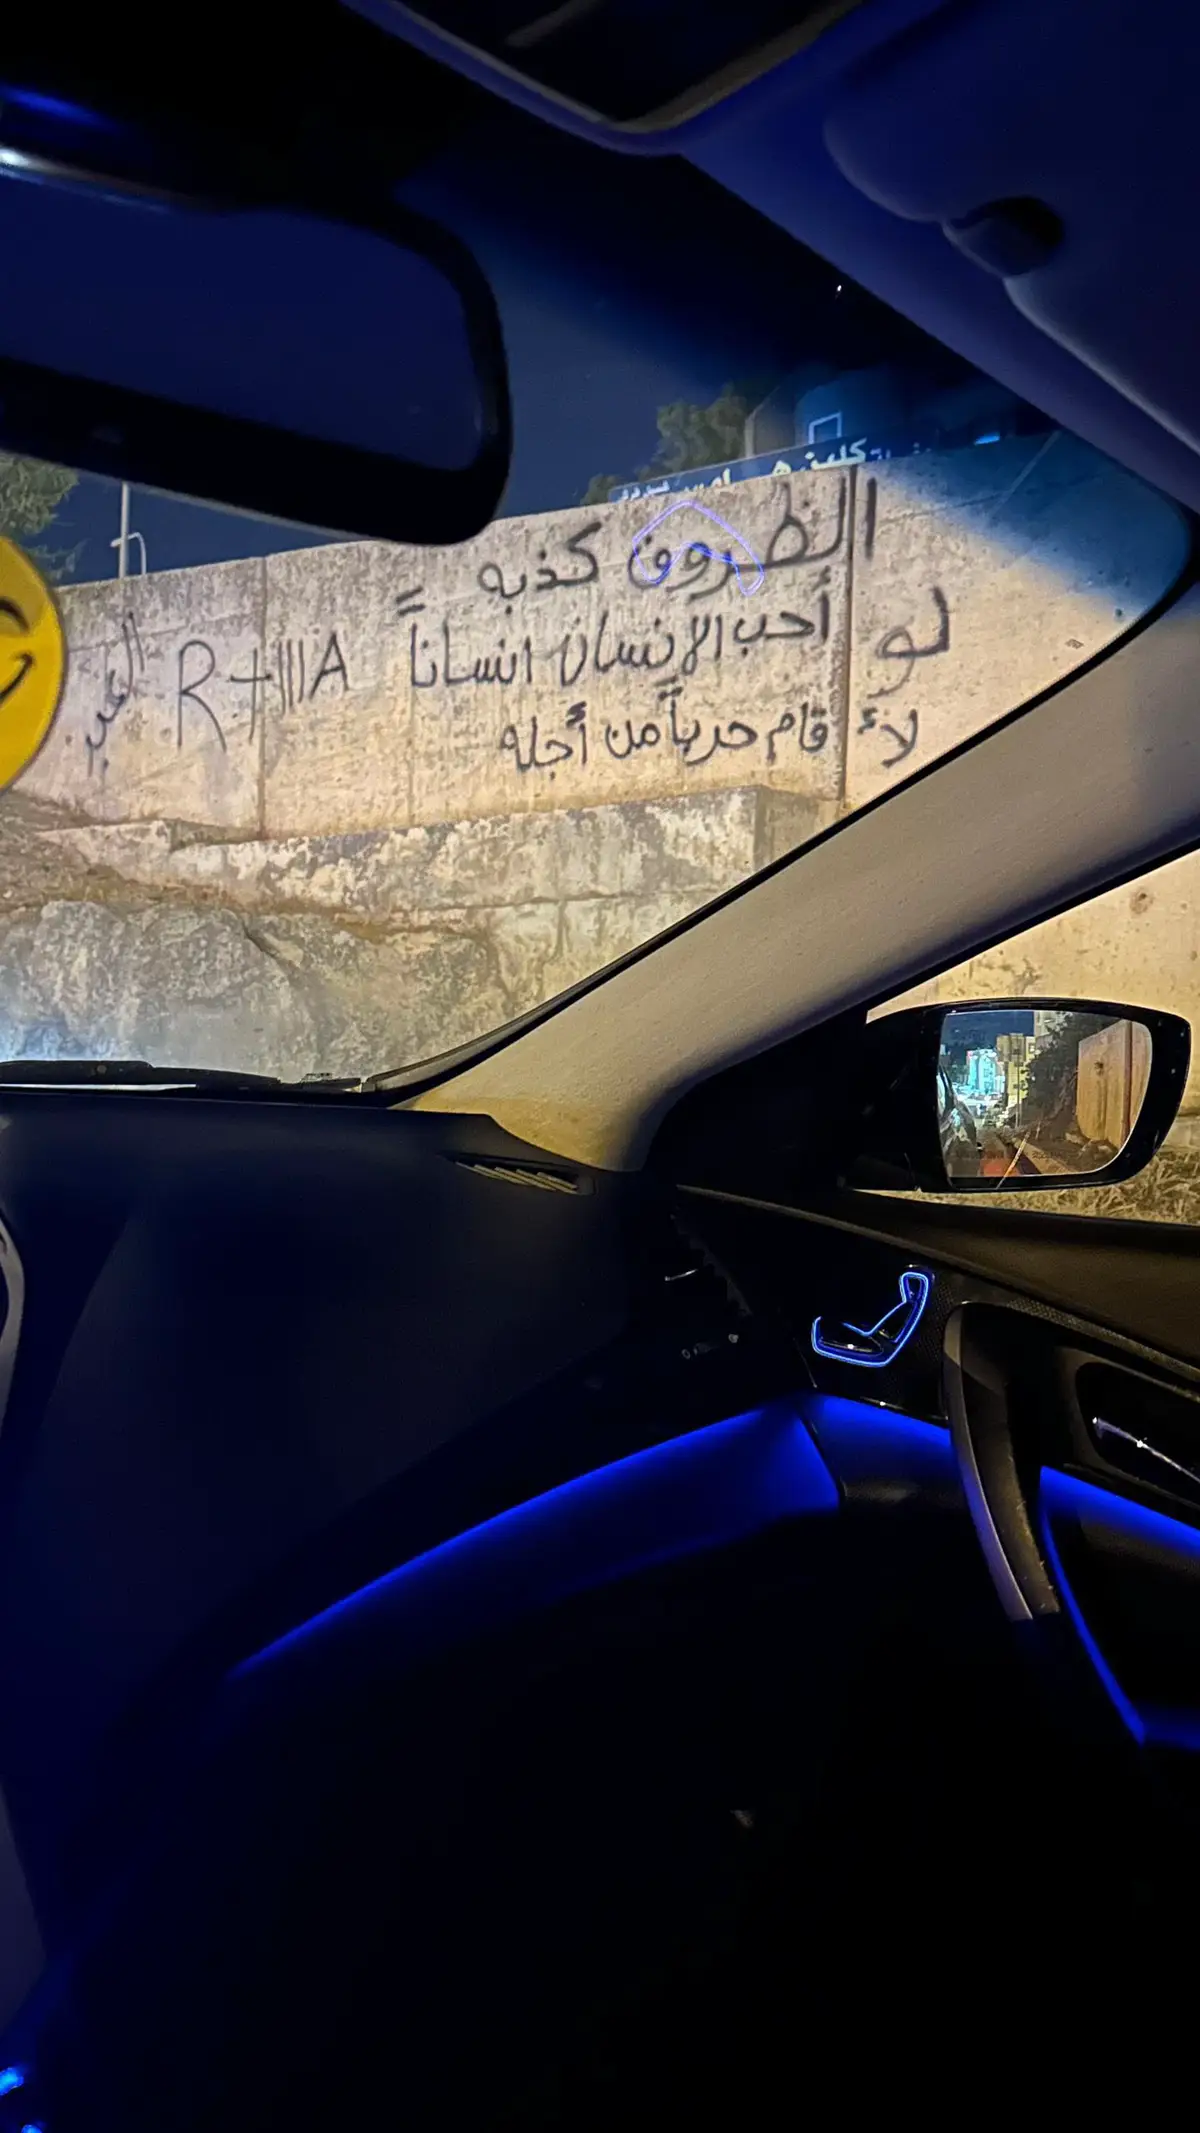 كلين هـ
الظروف كذبه
لو أحب الإنسان انساناً
لأ قام حرباً من أجله
R+IIIA